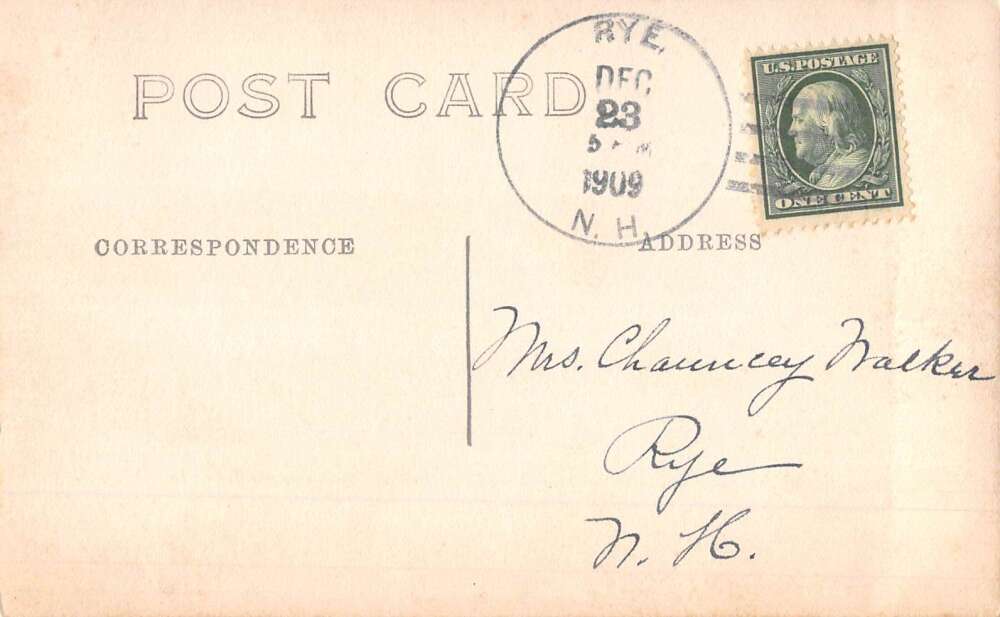 POST CARD
RYE,
DEC
23
5 PM
1909
N. H.
U.S. POSTAGE
ONE CENT
CORRESPONDENCE
ADDRESS
Mrs. Chauncey Walker
Rye
N. H.